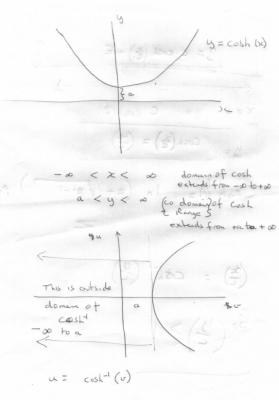 y
y = cosh (x)
a
x
-∞ < x < ∞ domain of cosh
extends from -∞ to +∞
a < y < ∞ (co domain) of cosh
& Range }
extends from +a to + ∞
u
This is outside
domain of
cosh⁻¹
-∞ to a
a
v
u = cosh⁻¹ (v)